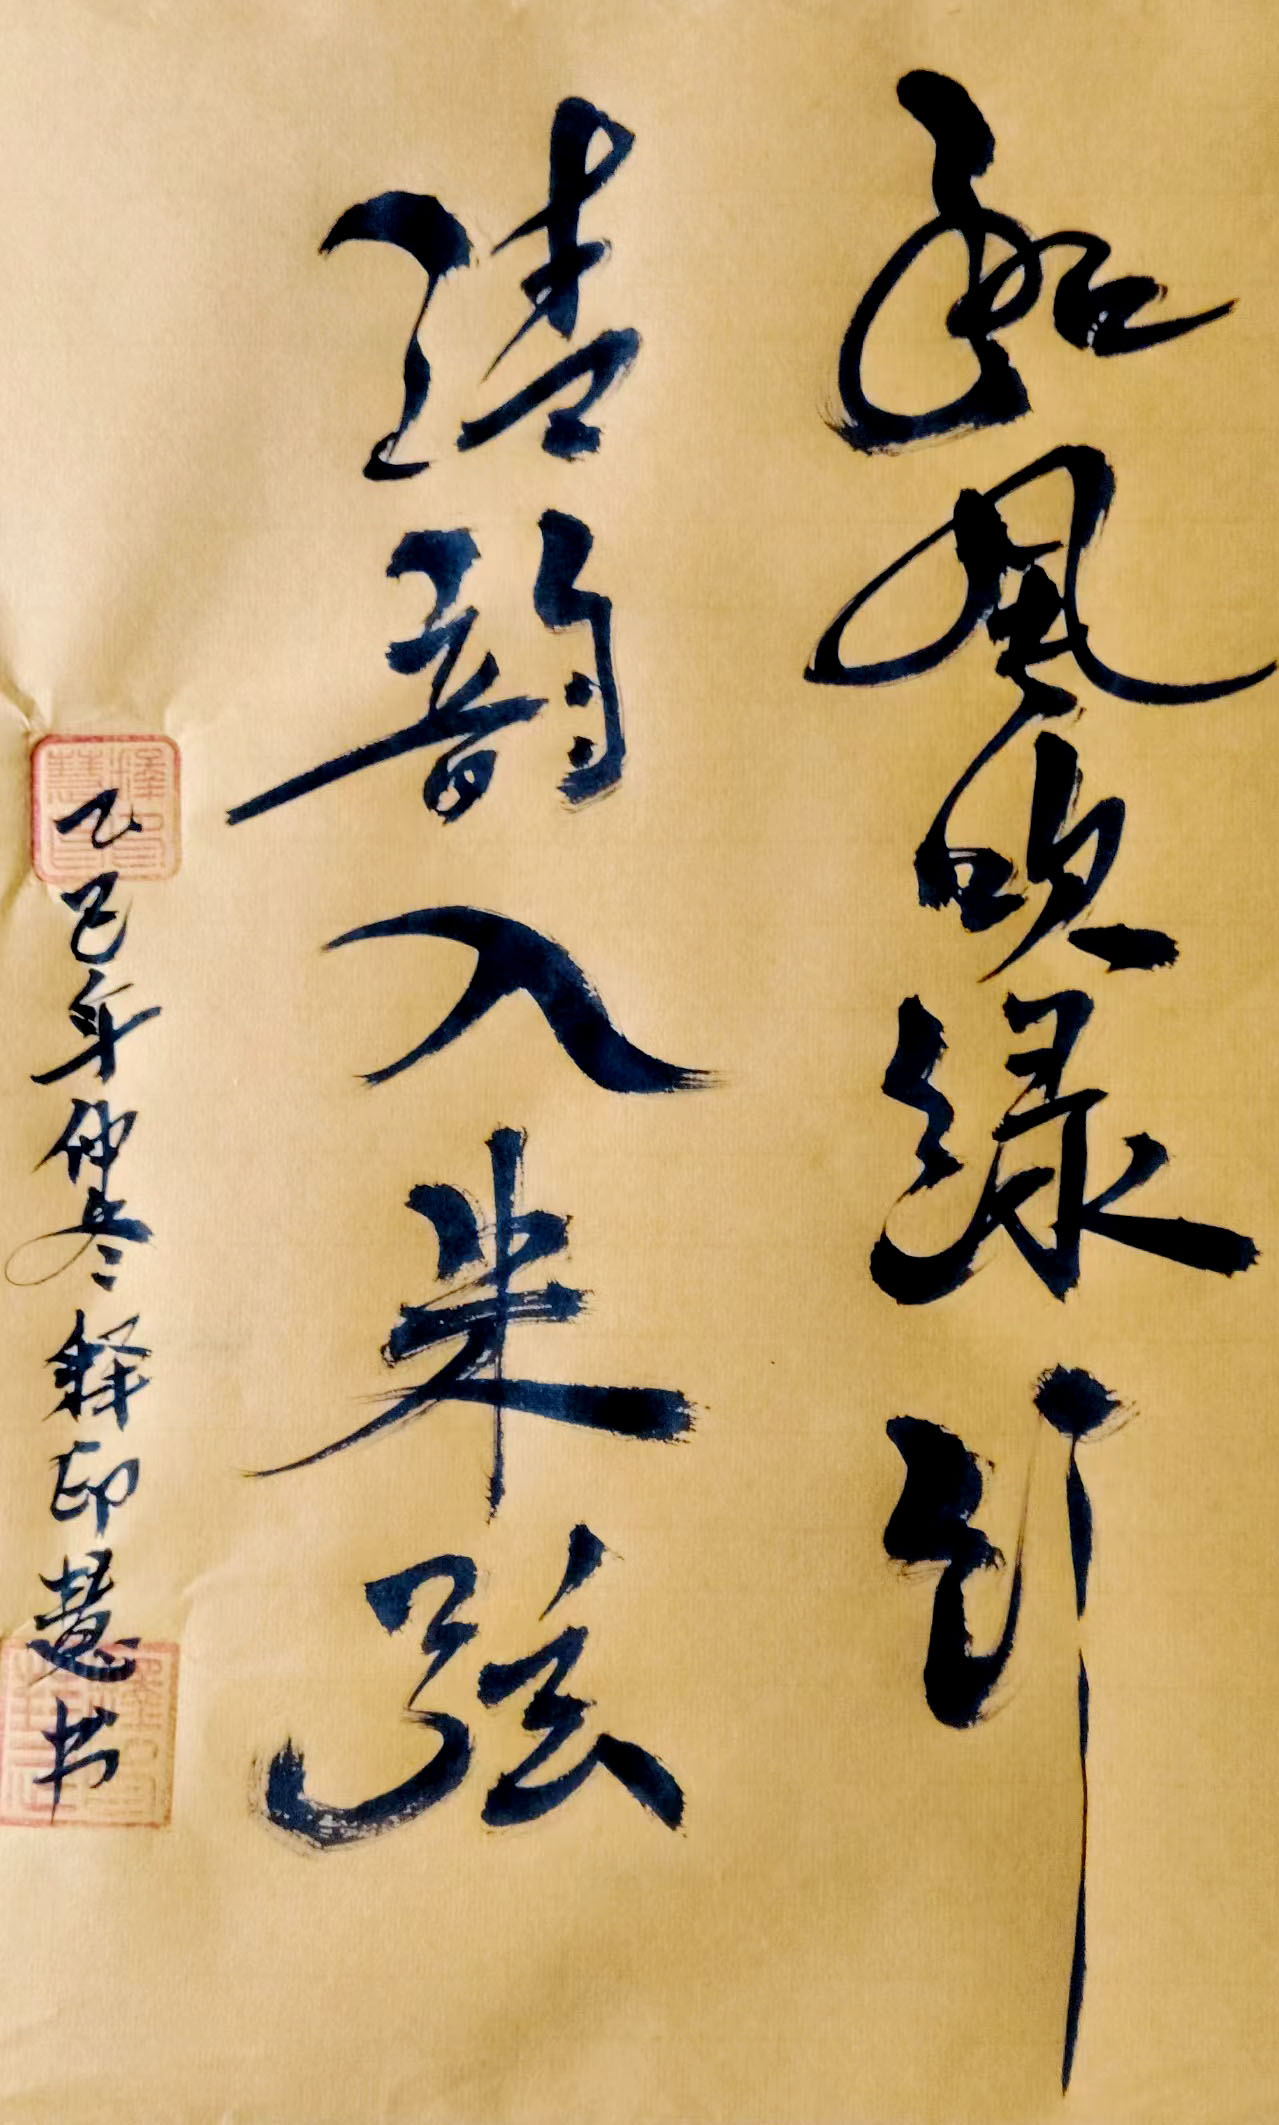 和風吹绿引
清韵入朱弦
乙巳年仲冬释印慧书